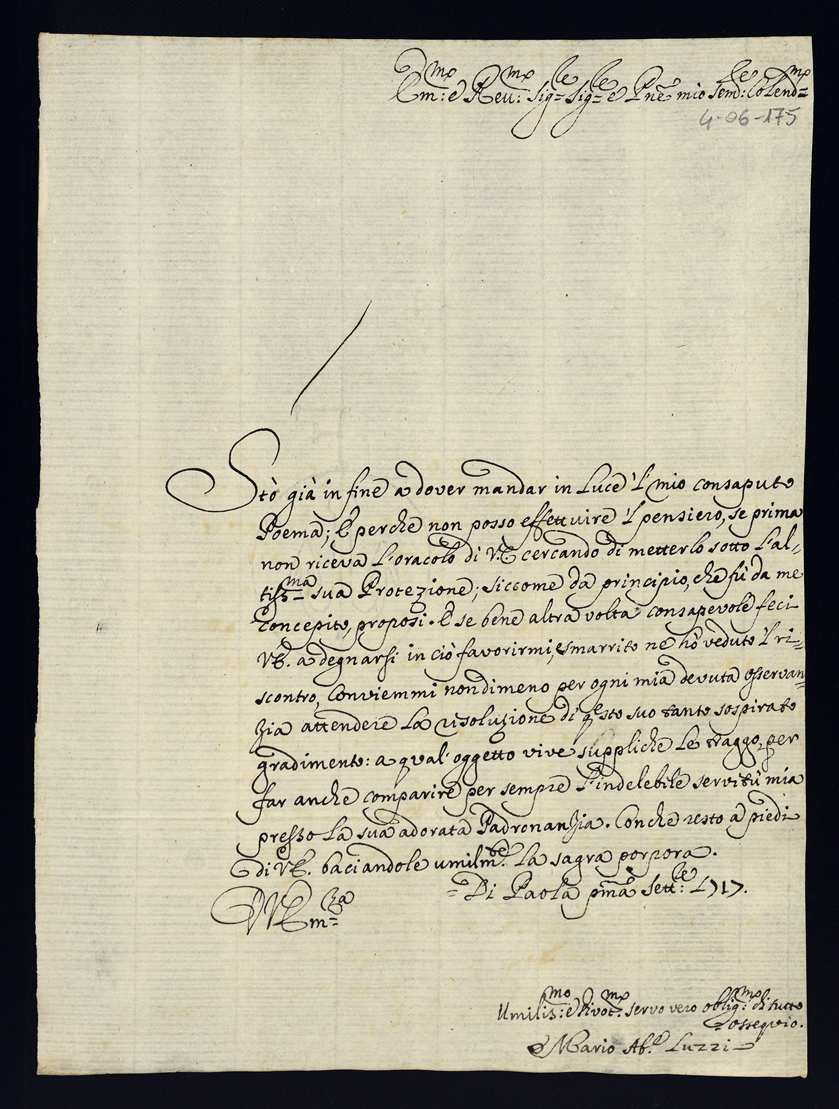 Em:mo e Reu:mo Sig:le Sig:le e P͞ne mio Sem:le Colend:mo
4-06-175
Stò già in fine a dover mandar in Luce 'l mio consaputo
Poema; E perche non posso effettuire 'l pensiero, se prima
non riceva l'oracolo di VE cercando di metterlo sotto l'al-
tiss:ma sua Protezione; siccome da principio, che fù da me
concepito, proposi. E se bene altra volta consapevole feci
VE. a degnarsi in ciò favorirmi, smarrito ne hò veduto 'l ri-
scontro, Conviemmi nondimeno per ogni mia devuta osservan-
zia attendere la risoluzione di q͞esto suo tanto sospirato
gradimento: a qual'oggetto vive suppliche Le traggo, per
far anche comparire per sempre l'indelebile servitù mia
presso La sua adorata Padronanzia. Conche resto a piedi
di VE. baciandole umilm:te La sagra porpora.
Di Paola p͞ma Sett:le 1717.
D VEm:za
Umilis:mo e Divot:mo servo vero oblig:mo di tutto
ossequio.
Mario Ab.e Luzzi